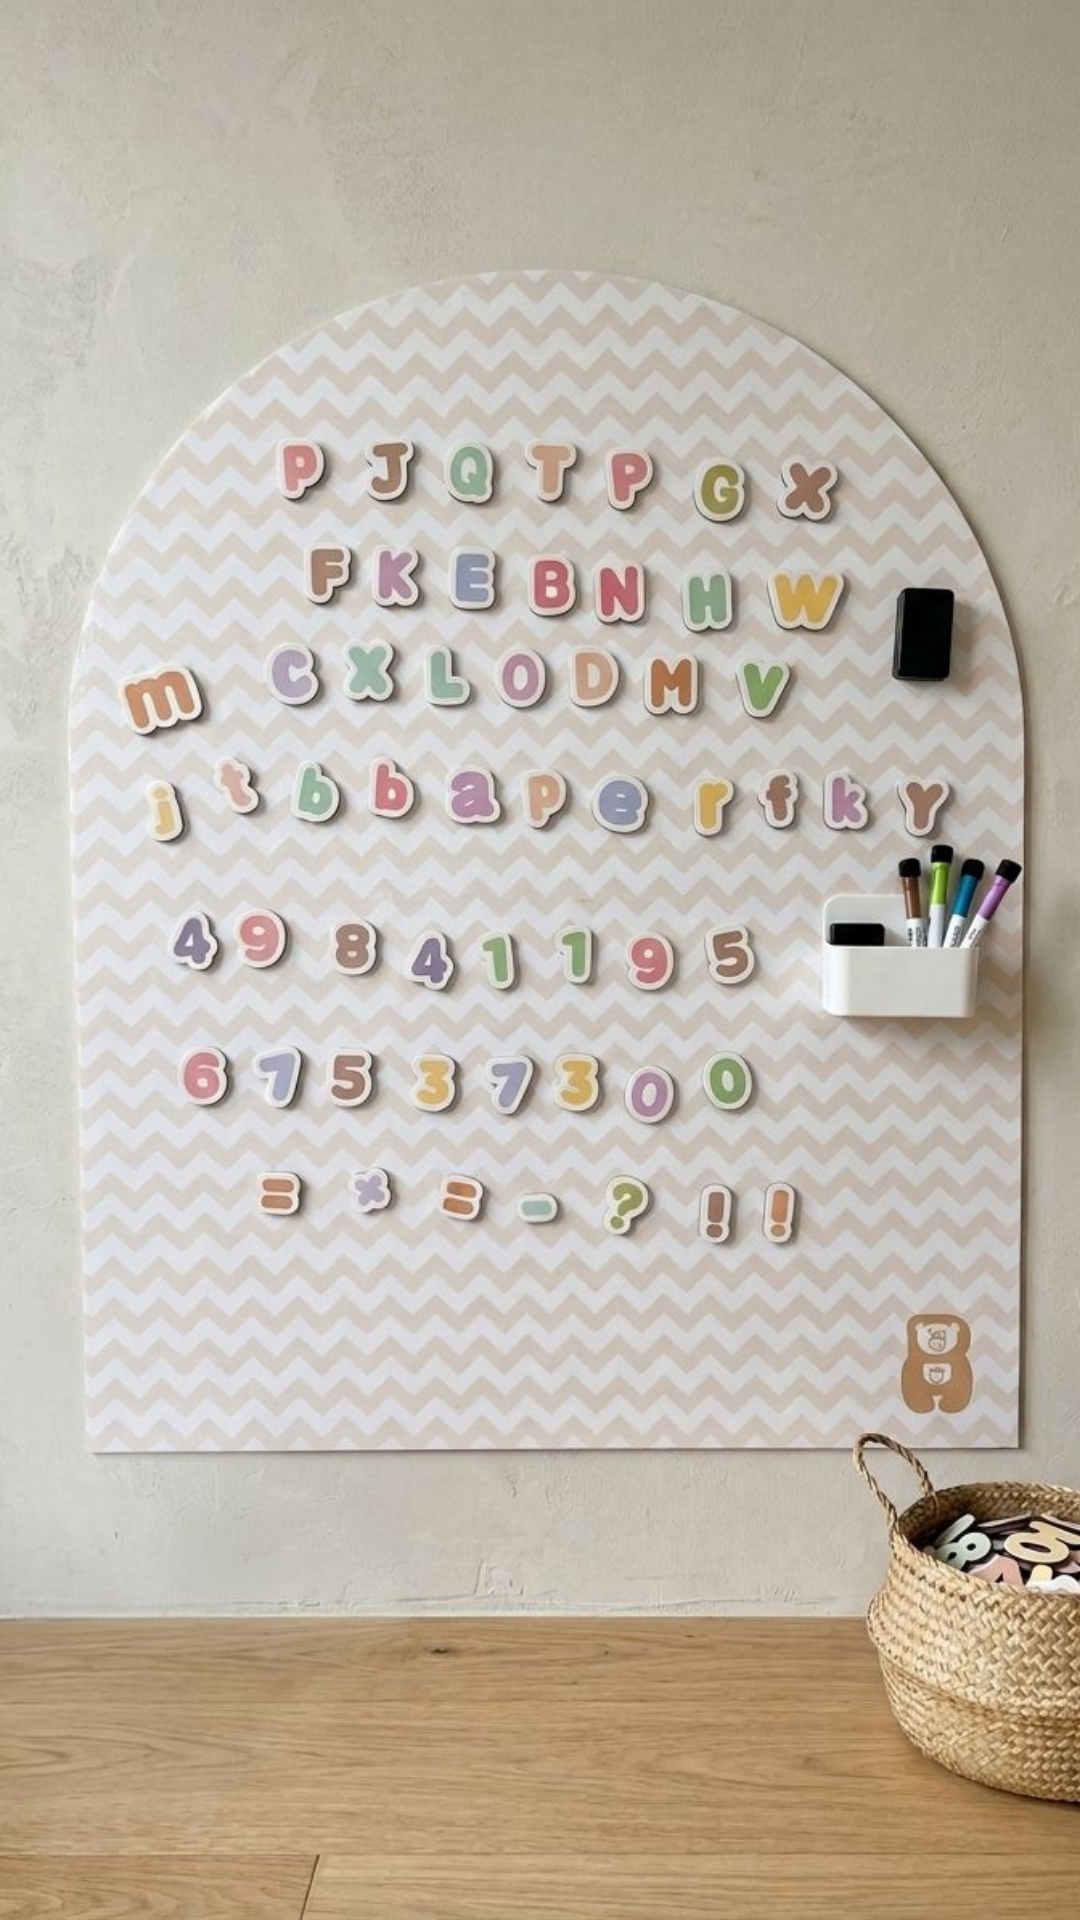 P J Q T P G X
F K E B N H W
m C X L O D M V
j t b b a p e r f k Y
4 9 8 4 1 1 9 5
6 7 5 3 7 3 0 0
= × = - ? ! !